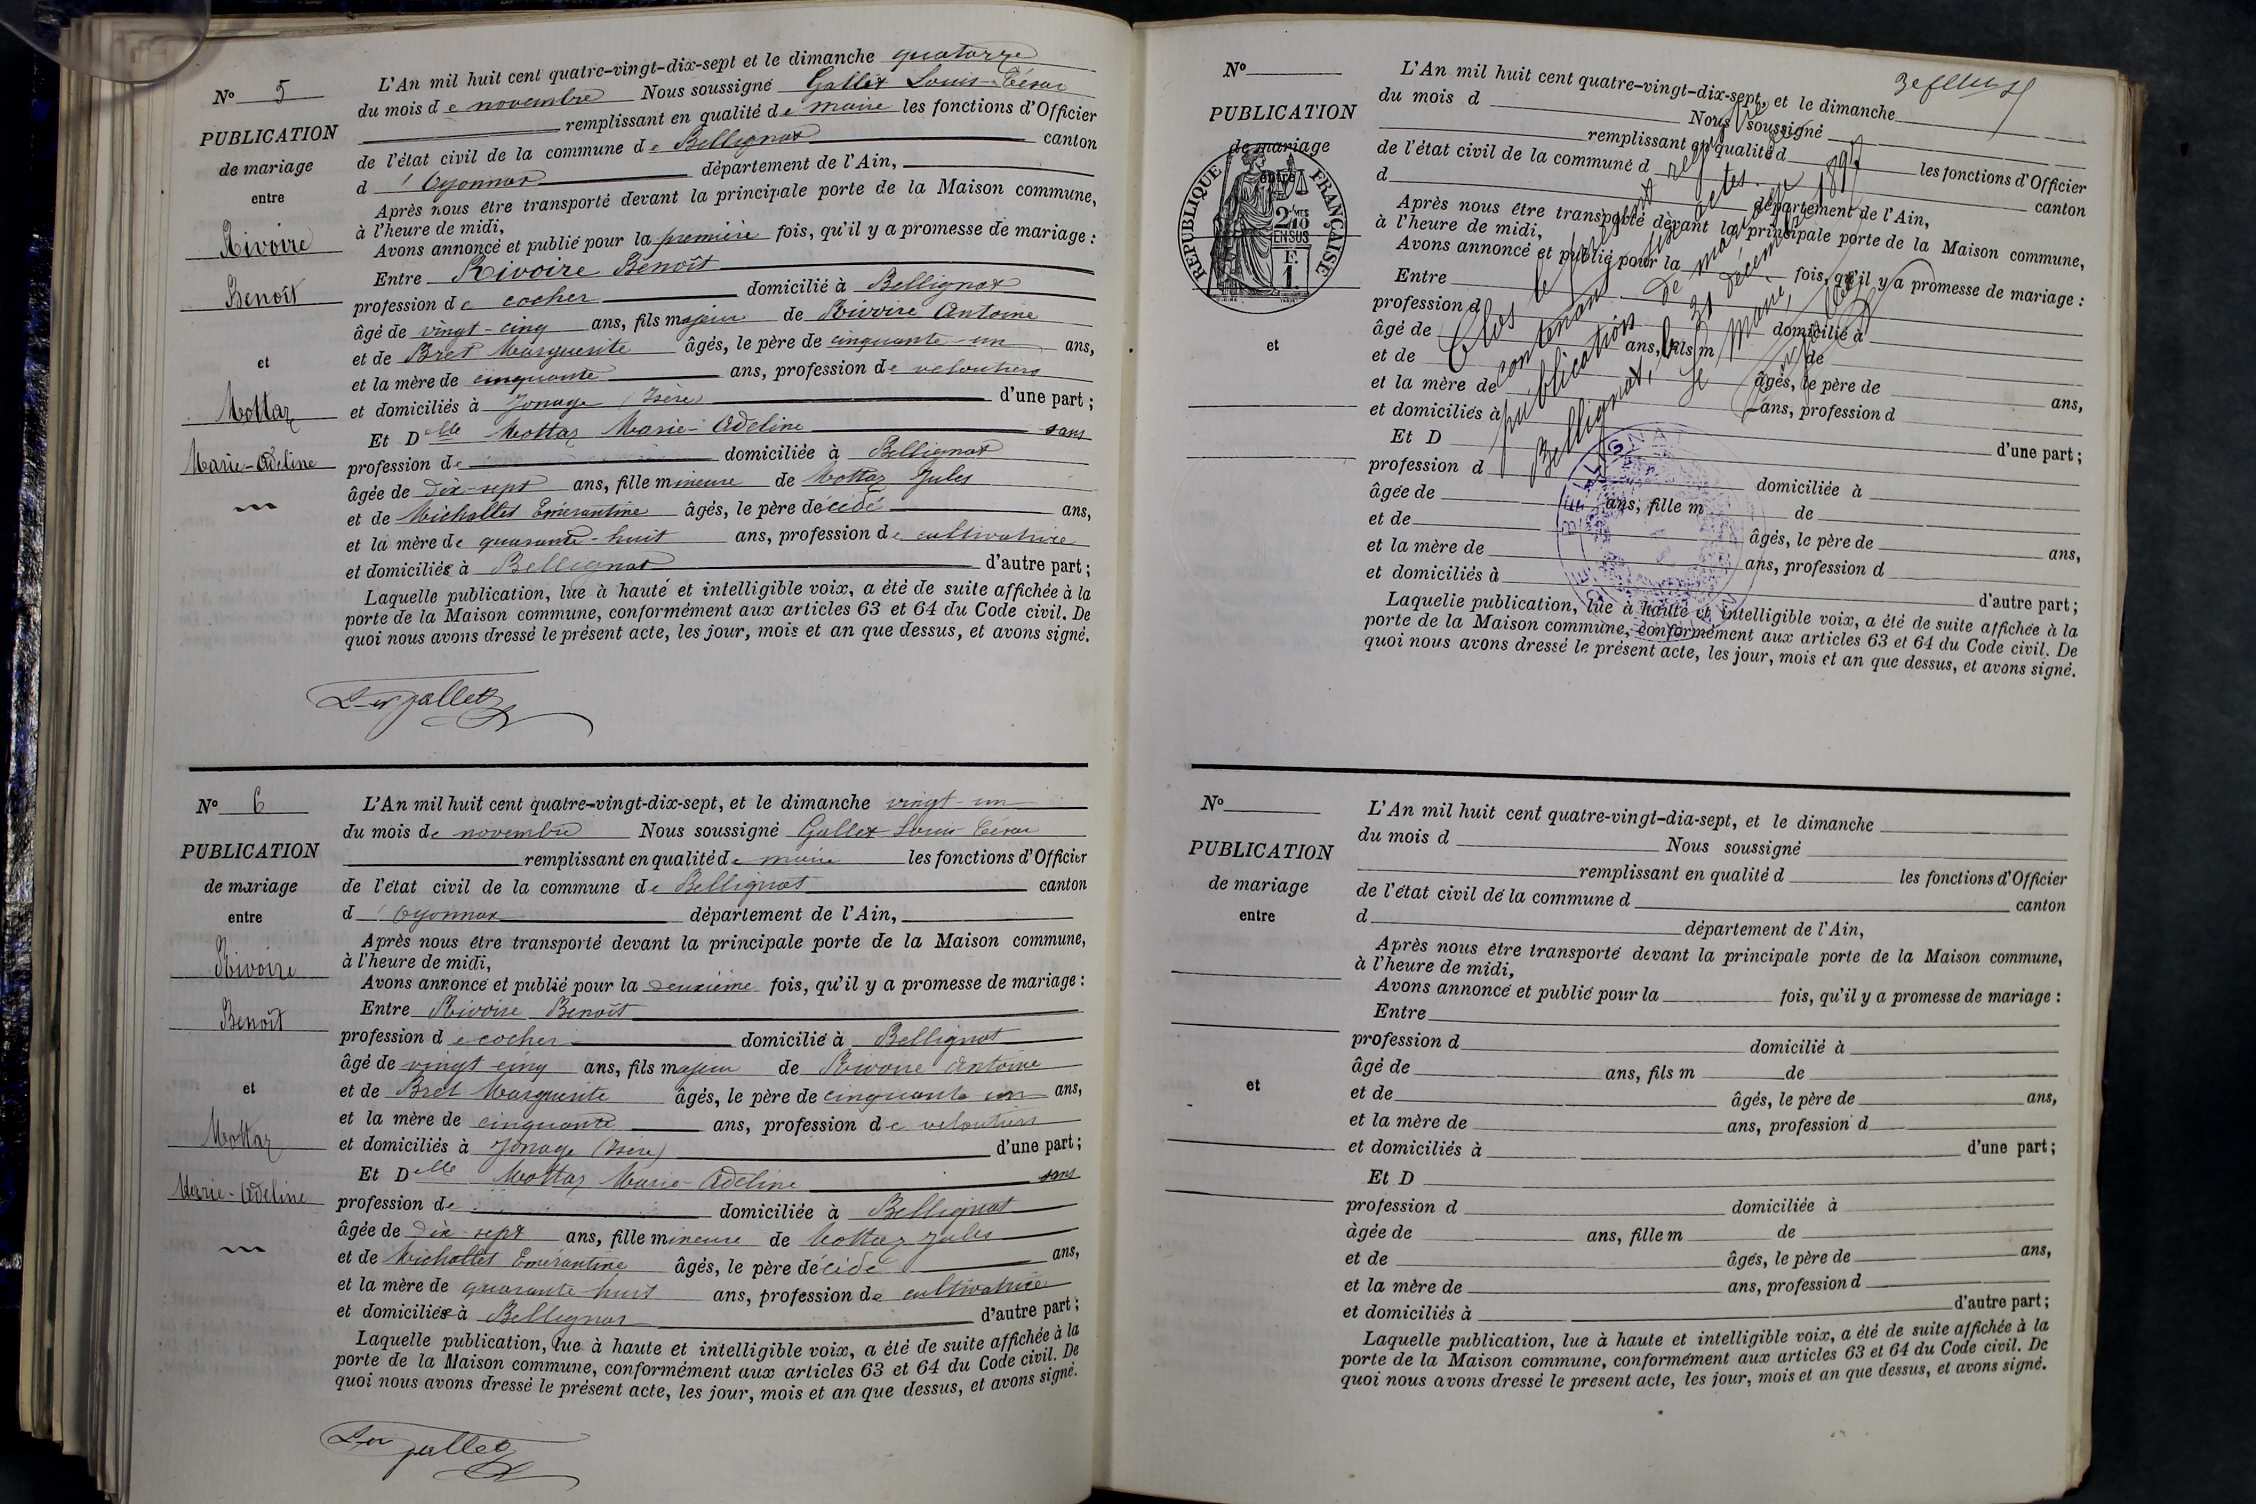 N° 5
PUBLICATION
de mariage
entre
Rivoire
Benoît
et
Mottaz
Marie-Adeline
L'An mil huit cent quatre-vingt-dix-sept et le dimanche quatorze
du mois de novembre Nous soussigné Gallet Louis-César
remplissant en qualité de maire les fonctions d'Officier
de l'état civil de la commune de Bellignat canton
d'Oyonnax département de l'Ain,
Après nous être transporté devant la principale porte de la Maison commune,
à l'heure de midi,
Avons annoncé et publié pour la première fois, qu'il y a promesse de mariage :
Entre Rivoire Benoît
profession de cocher domicilié à Bellignat
âgé de vingt-cinq ans, fils majeur de Rivoire Antoine
et de Bret Marguerite âgés, le père de cinquante-un ans,
et la mère de cinquante ans, profession de veloutiers
et domiciliés à Jonage (Isère) d'une part ;
Et Delle Mottaz Marie-Adeline sans
profession de domiciliée à Bellignat
âgée de dix-sept ans, fille mineure de Mottaz Jules
et de Michallet Emérantine âgés, le père décédé ans,
et la mère de quarante-huit ans, profession de cultivatrice
et domiciliés à Bellignat d'autre part ;
Laquelle publication, lue à hauté et intelligible voix, a été de suite affichée à la
porte de la Maison commune, conformément aux articles 63 et 64 du Code civil. De
quoi nous avons dressé le présent acte, les jour, mois et an que dessus, et avons signé.
N° 6
PUBLICATION
de mariage
entre
Rivoire
Benoît
et
Mottaz
Marie-Adeline
L'An mil huit cent quatre-vingt-dix-sept, et le dimanche vingt-un
du mois de novembre Nous soussigné Gallet Louis César
remplissant en qualité de maire les fonctions d'Officier
de l'état civil de la commune de Bellignat canton
d'Oyonnax département de l'Ain,
Après nous être transporté devant la principale porte de la Maison commune,
à l'heure de midi,
Avons annoncé et publié pour la deuxième fois, qu'il y a promesse de mariage :
Entre Rivoire Benoît
profession de cocher domicilié à Bellignat
âgé de vingt-cinq ans, fils majeur de Rivoire Antoine
et de Bret Marguerite âgés, le père de cinquante un ans,
et la mère de cinquante ans, profession de veloutiers
et domiciliés à Jonage (Isère) d'une part ;
Et Delle Mottaz Marie-Adeline sans
profession de domiciliée à Bellignat
âgée de dix-sept ans, fille mineure de Mottaz Jules
et de Michallet Emérantine âgés, le père décédé ans,
et la mère de quarante huit ans, profession de cultivatrice
et domiciliés à Bellignat d'autre part ;
Laquelle publication, lue à haute et intelligible voix, a été de suite affichée à la
porte de la Maison commune, conformément aux articles 63 et 64 du Code civil. De
quoi nous avons dressé le présent acte, les jour, mois et an que dessus, et avons signé.
N°
PUBLICATION
de mariage
entre
et
RÉPUBLIQUE FRANÇAISE
2/10 MES
EN SUS
F.
1.
L'An mil huit cent quatre-vingt-dix-sept, et le dimanche
du mois d Nous soussigné
remplissant en qualité d les fonctions d'Officier
de l'état civil de la commune d canton
d département de l'Ain,
Après nous être transporté devant la principale porte de la Maison commune,
à l'heure de midi,
Avons annoncé et publié pour la fois, qu'il y a promesse de mariage :
Entre
profession d domicilié à
âgé de ans, fils m de
et de âgés, le père de ans,
et la mère de ans, profession d
et domiciliés à d'une part ;
Et D
profession d domiciliée à
âgée de ans, fille m de
et de âgés, le père de ans,
et la mère de ans, profession d
et domiciliés à d'autre part ;
Laquelle publication, lue à haute et intelligible voix, a été de suite affichée à la
porte de la Maison commune, conformément aux articles 63 et 64 du Code civil. De
quoi nous avons dressé le présent acte, les jour, mois et an que dessus, et avons signé.
Clos le présent registre
contenant six actes de
publication de mariage
Bellignat, le 31 décembre 1897
Le Maire,
N°
PUBLICATION
de mariage
entre
et
L'An mil huit cent quatre-vingt-dia-sept, et le dimanche
du mois d Nous soussigné
remplissant en qualité d les fonctions d'Officier
de l'état civil de la commune d canton
d département de l'Ain,
Après nous être transporté devant la principale porte de la Maison commune,
à l'heure de midi,
Avons annoncé et publié pour la fois, qu'il y a promesse de mariage :
Entre
profession d domicilié à
âgé de ans, fils m de
et de âgés, le père de ans,
et la mère de ans, profession d
et domiciliés à d'une part ;
Et D
profession d domiciliée à
âgée de ans, fille m de
et de âgés, le père de ans,
et la mère de ans, profession d
et domiciliés à d'autre part ;
Laquelle publication, lue à haute et intelligible voix, a été de suite affichée à la
porte de la Maison commune, conformément aux articles 63 et 64 du Code civil. De
quoi nous avons dressé le present acte, les jour, mois et an que dessus, et avons signé.